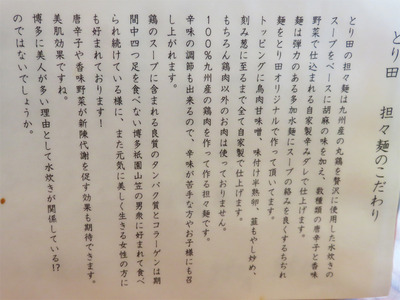 とり田　担々麺のこだわり
とり田の担々麺は九州産の丸鶏を贅沢に使用した水炊きの
スープをベースに胡麻の味を加え、数種類の唐辛子と香味
野菜で仕込まれる自家製辛みダレで仕上げます。
麺は弾力のある多加水麺にスープの絡みを良くするちぢれ
麺をとり田オリジナルで作って頂いてます。
トッピングに鳥肉甘味噌、味付け半熟卵、韮もやし炒め、
刻み葱に至るまで全て自家製で仕上げます。
もちろん鶏肉以外のお肉は使っておりません。
100％九州産の鶏肉を使って作る担々麺です。
辛味の調節も出来るので、辛味が苦手な方やお子様にも召
し上がれます。
鶏のスープに含まれる良質のタンパク質とコラーゲンは期
間中四つ足を食べない博多祇園山笠の男衆に好まれて食べ
られ続けている様に、また元気に美しく生きる女性の方に
も好まれております！
唐辛子や香味野菜が新陳代謝を促す効果も期待できます。
美肌効果ですね。
博多に美人が多い理由として水炊きが関係している!?
のではないでしょうか。